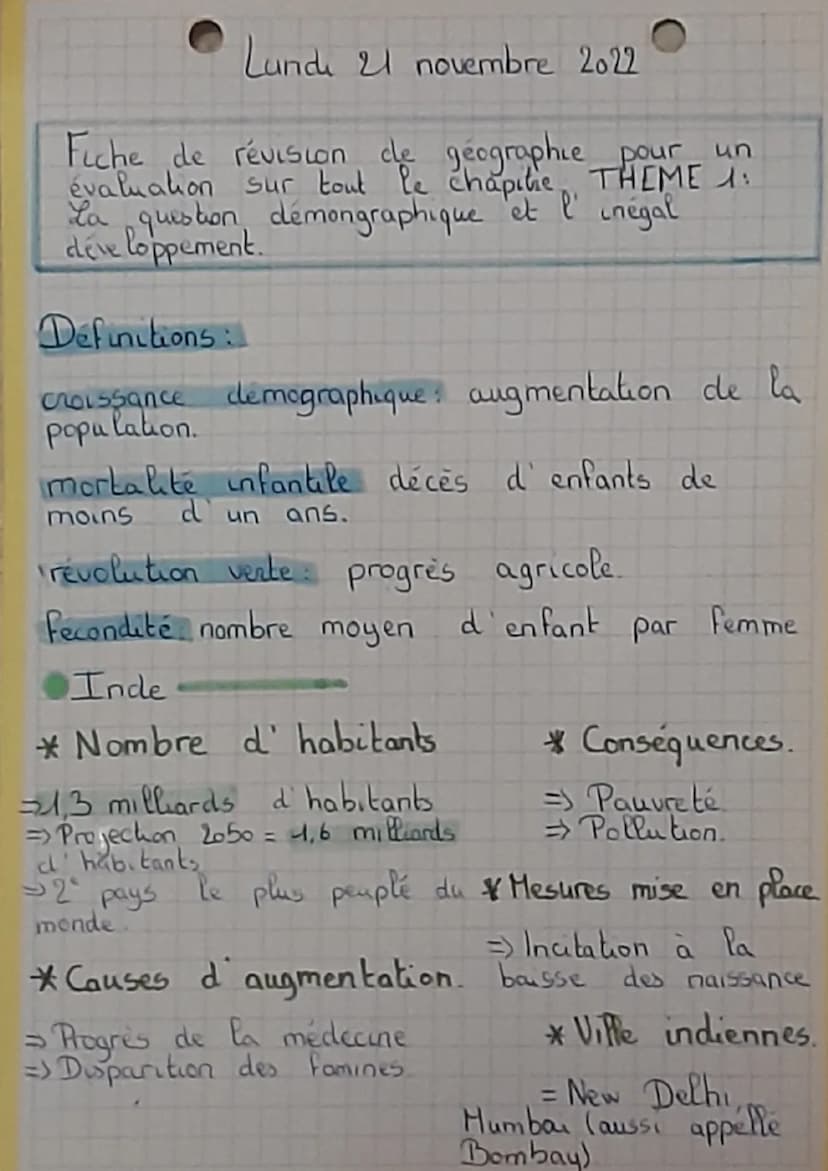 Lundi 21 novembre 2022
Fiche de révision de géographie pour un
évaluation sur tout le chapitre THEME 1:
La question démongraphique et l'inégal
développement.
Définitions:
croissance démographique: augmentation de la
population.
mortalité infantile décès d'enfants de
moins d'un ans.
révolution verte: progrès agricole.
fécondité: nombre moyen d'enfant par femme
Inde
* Nombre d'habitants
⇒1,3 milliards d'habitants
⇒ Projection 2050 = 1,6 milliards
d'habitants
⇒2e pays le plus peuplé du
monde.
* Causes d'augmentation.
⇒ Progrès de la médecine
⇒ Disparition des famines
* Conséquences.
⇒ Pauvreté
⇒ Pollution.
* Mesures mise en place
⇒ Incitation à la
baisse des naissance
* Ville indiennes.
= New Delhi,
Mumbai (aussi appellé
Bombay)